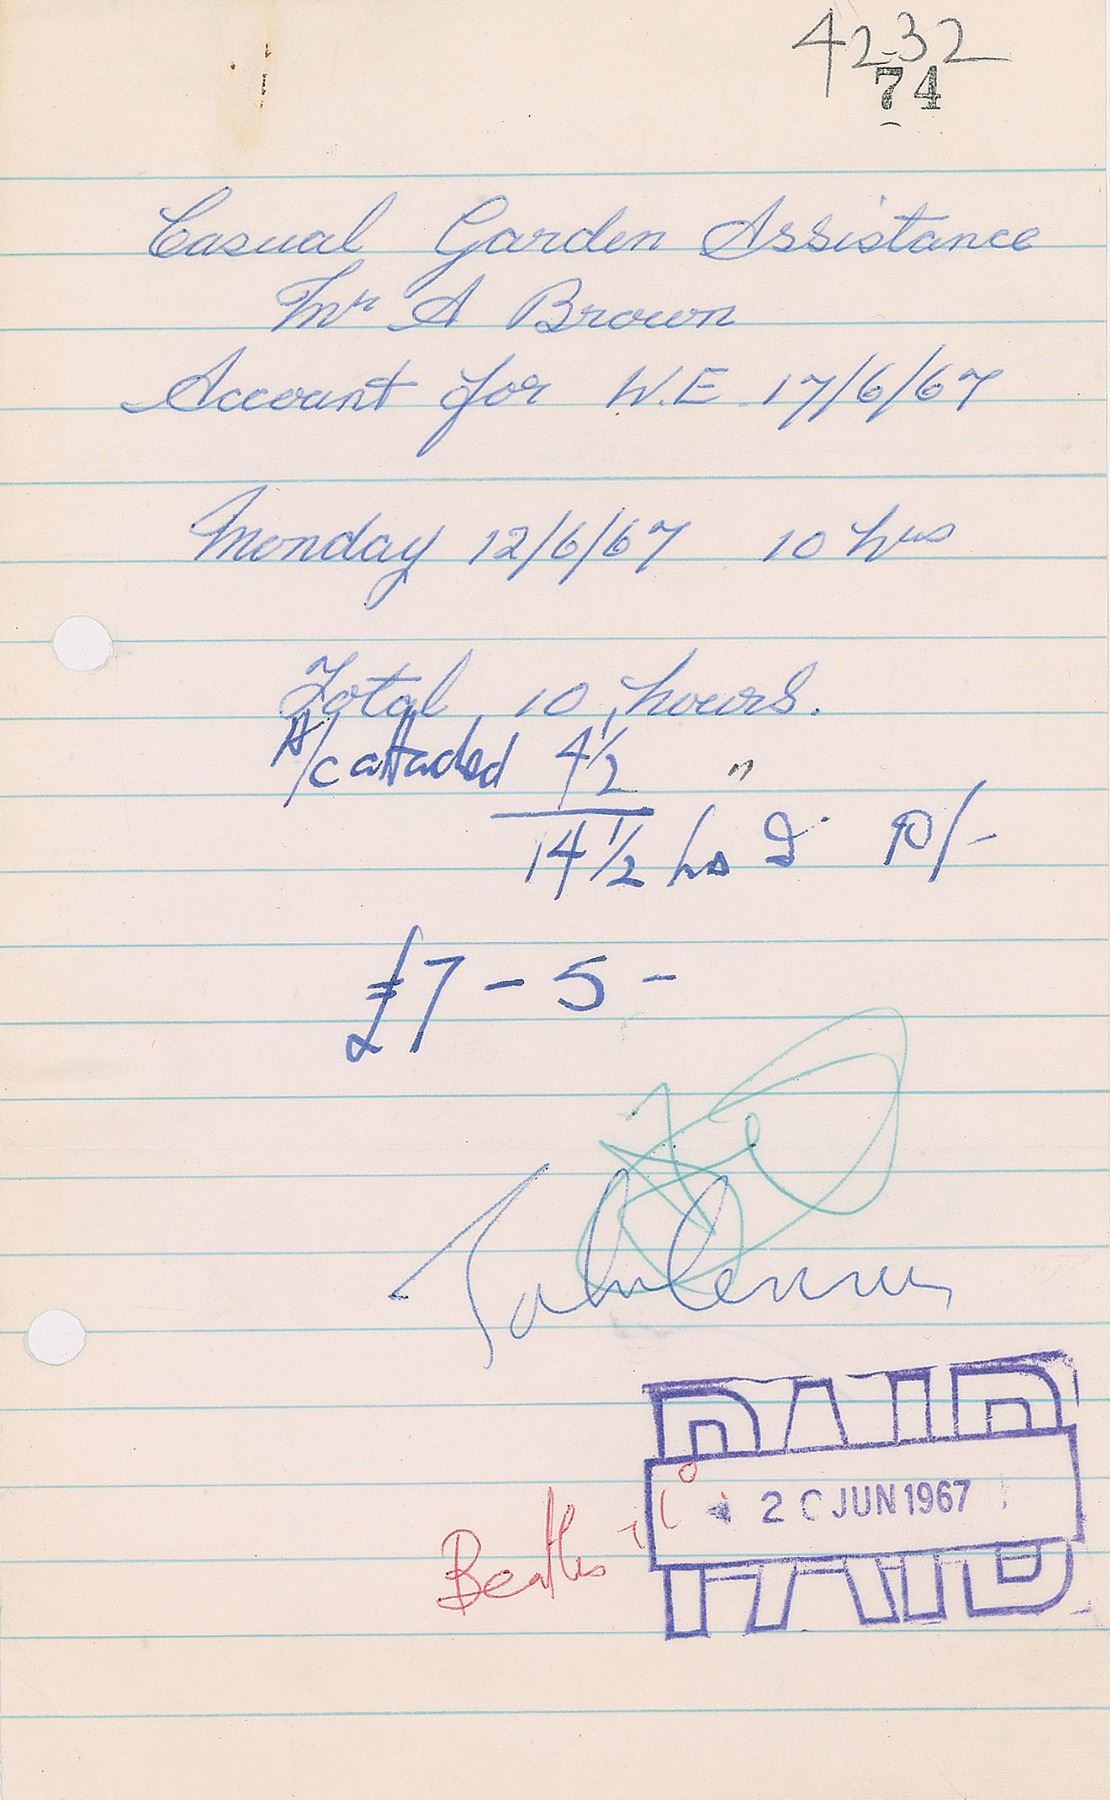 4232
74
Casual Garden Assistance
Mr A Brown
Account for W.E. 17/6/67
Monday 12/6/67 10 hrs
Total 10 hours.
A/c attached 4 1/2 "
14 1/2 hs @ 10/-
£7 - 5 -
John Lennon
PAID
2 JUN 1967
PAID
Beatles